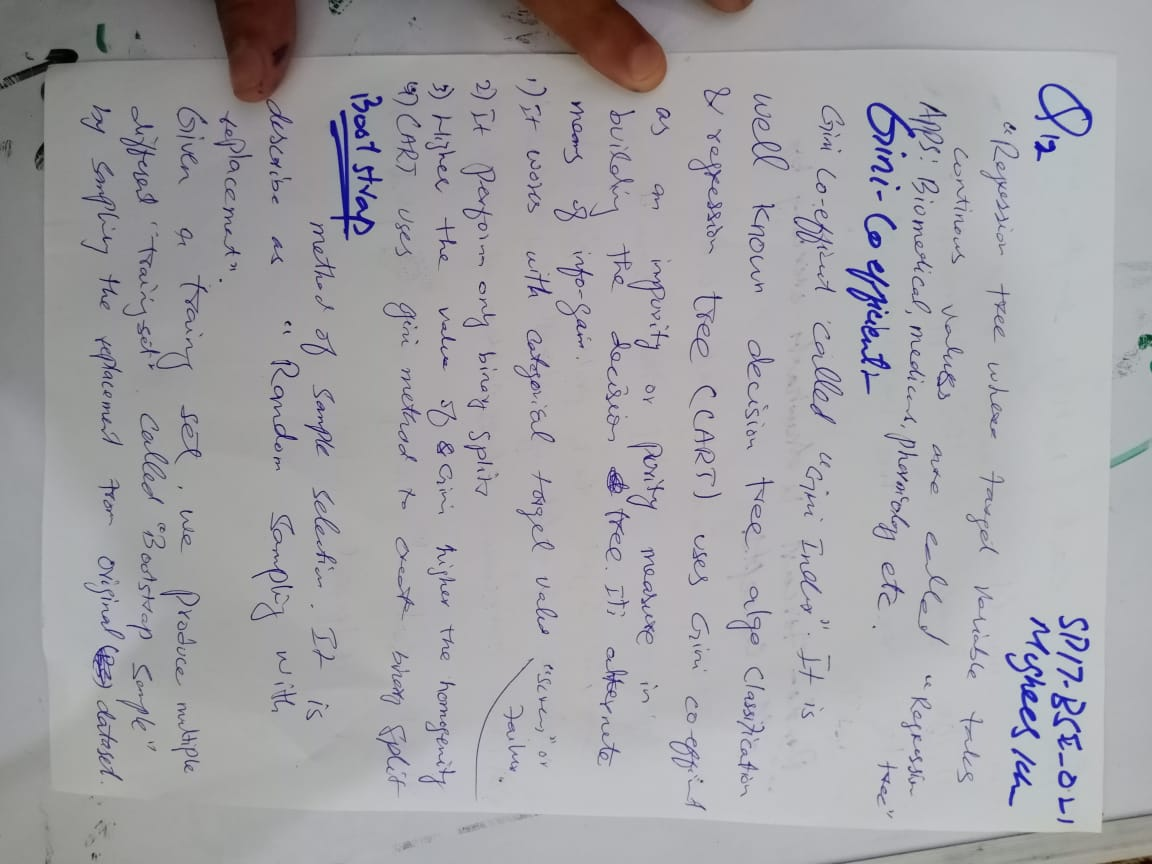 SP17-BSE-021
Q12
"Regression tree where target variable takes
continous values are called "Regression tree"
Apps: Biomedical, medicine, pharmology etc.
Gini-Coefficient:-
Gini Co-efficient called "Gini Index". It is
well known decision tree algo Classification
& regression tree (CART) uses Gini co-efficient
as an impurity or purity measure in
building the decision tree. It's alternate
means of info-gain.
1) It works with categorial target value "success" or
"Failure".
2) It perform only binary splits
3) Higher the value of Gini higher the homogenity
4) CART uses gini method to create binary split
Boot strap
method of sample selection. It is
describe as "Random Sampling with
replacement".
Given a training set, we produce multiple
different "training-set" called "Bootstrap Sample"
by Sampling the replacement from original dataset.